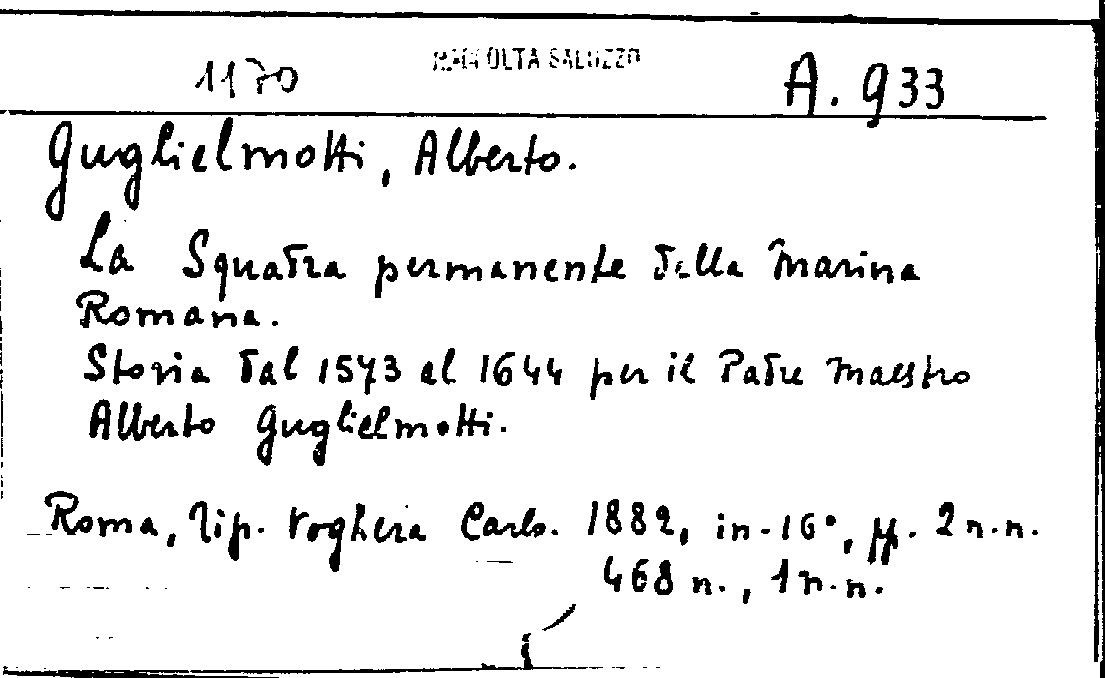 1170 RACCOLTA SALUZZO A. 933
Guglielmotti, Alberto.
La Squadra permanente della Marina
Romana.
Storia dal 1573 al 1644 per il Padre Maestro
Alberto Guglielmotti.
Roma, Tip. Voghera Carlo. 1882, in-16°, pp. 2 n.n.
468 n., 1 n.n.